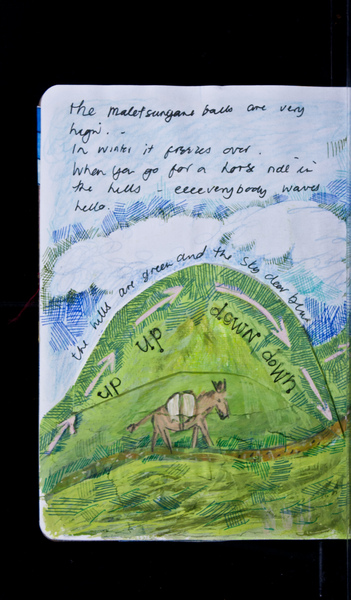 the maletsunyane balls are very
high. -
In winter it freezes over.
When you go for a horse ride in
the hills - eeeeverybody waves
hello.
the hills are green and the sky clear blue
up up down down